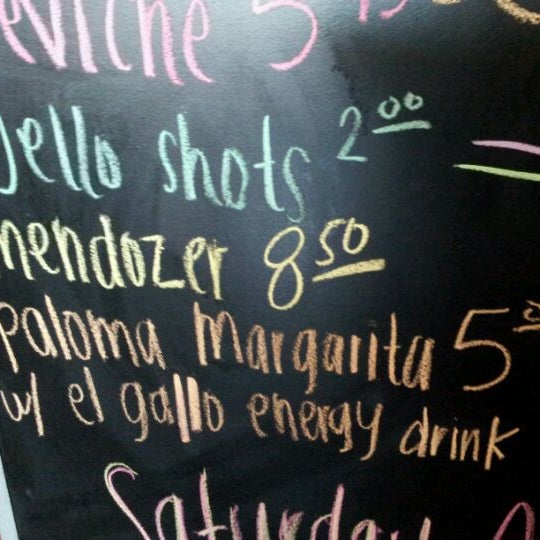 eviche 5
Jello shots 2.00
mendozer 8.50
Paloma Margarita 5
w/ el gallo energy drink
Saturday